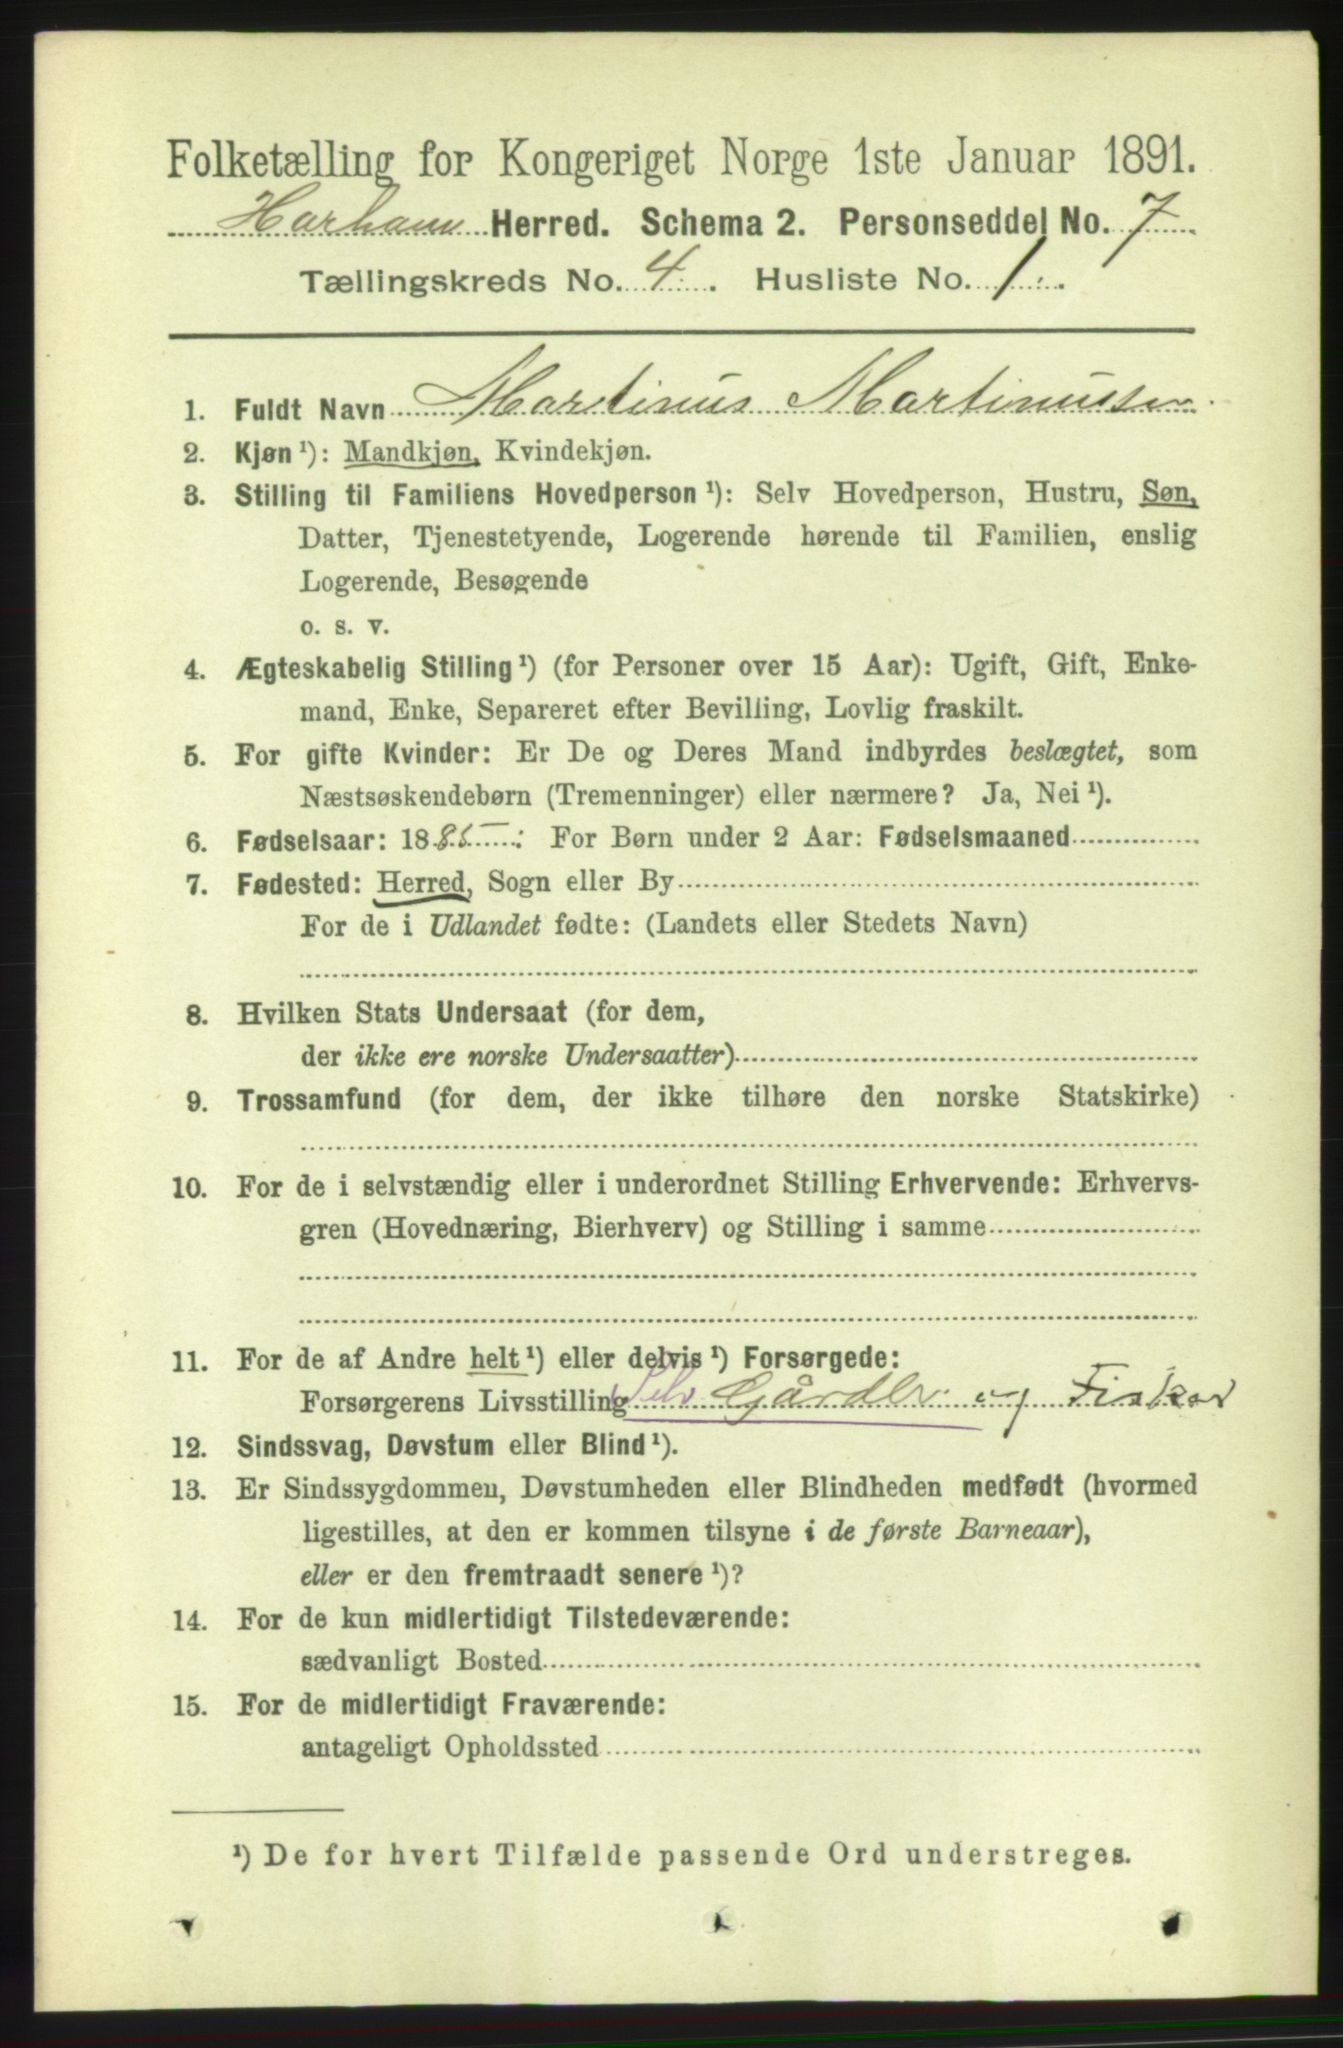 Folketælling for Kongeriget Norge 1ste Januar 1891.
Harham Herred. Schema 2. Personseddel No. 7
Tællingskreds No. 4. Husliste No. 1.
1. Fuldt Navn Martinus Martinussen
2. Kjøn ¹): Mandkjøn, Kvindekjøn.
3. Stilling til Familiens Hovedperson ¹): Selv Hovedperson, Hustru, Søn,
Datter, Tjenestetyende, Logerende hørende til Familien, enslig
Logerende, Besøgende
o. s. v.
4. Ægteskabelig Stilling ¹) (for Personer over 15 Aar): Ugift, Gift, Enke-
mand, Enke, Separeret efter Bevilling, Lovlig fraskilt.
5. For gifte Kvinder: Er De og Deres Mand indbyrdes beslægtet, som
Næstsøskendebørn (Tremenninger) eller nærmere? Ja, Nei ¹).
6. Fødselsaar: 1885: For Børn under 2 Aar: Fødselsmaaned
7. Fødested: Herred, Sogn eller By
For de i Udlandet fødte: (Landets eller Stedets Navn)
8. Hvilken Stats Undersaat (for dem,
der ikke ere norske Undersaatter)
9. Trossamfund (for dem, der ikke tilhøre den norske Statskirke)
10. For de i selvstændig eller i underordnet Stilling Erhvervende: Erhvervs-
gren (Hovednæring, Bierhverv) og Stilling i samme
11. For de af Andre helt ¹) eller delvis ¹) Forsørgede:
Forsørgerens Livsstilling Selv Gårdbr. og Fisker
12. Sindssvag, Døvstum eller Blind ¹).
13. Er Sindssygdommen, Døvstumheden eller Blindheden medfødt (hvormed
ligestilles, at den er kommen tilsyne i de første Barneaar),
eller er den fremtraadt senere ¹)?
14. For de kun midlertidigt Tilstedeværende:
sædvanligt Bosted
15. For de midlertidigt Fraværende:
antageligt Opholdssted
¹) De for hvert Tilfælde passende Ord understreges.